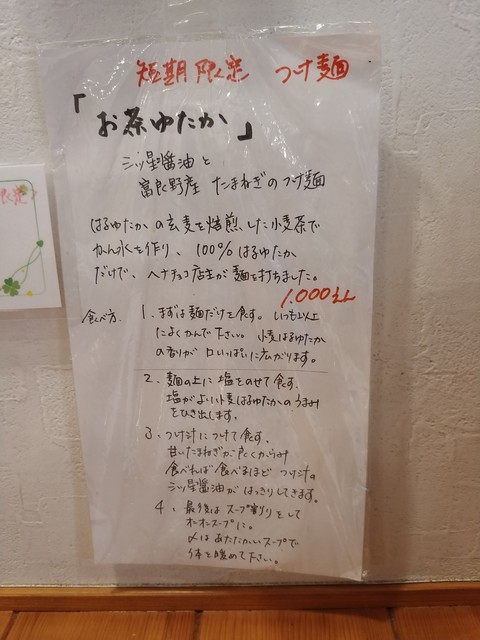 短期限定 つけ麺
「お茶ゆたか」
三ッ星醤油と
富良野産 たまねぎのつけ麺
はるゆたかの玄麦を焙煎した小麦茶で
かん水を作り、100%はるゆたか
だけで、ヘナチョコ店主が麺を打ちました。
1,000えん
食べ方. 1. まずは麺だけを食す。いつも以上
によくかんで下さい。小麦はるゆたか
の香りが口いっぱいに広がります。
2. 麺の上に塩をのせて食す.
塩がよい小麦はるゆたかのうまみ
をひき出します。
3. つけ汁につけて食す。
甘いたまねぎが良くからみ
食べれば食べるほどつけ汁の
三ッ星醤油がはっきりしてきます。
4. 最後はスープ割りをして
オニオンスープに。
〆はあたたかいスープで
体を暖めて下さい。
限定